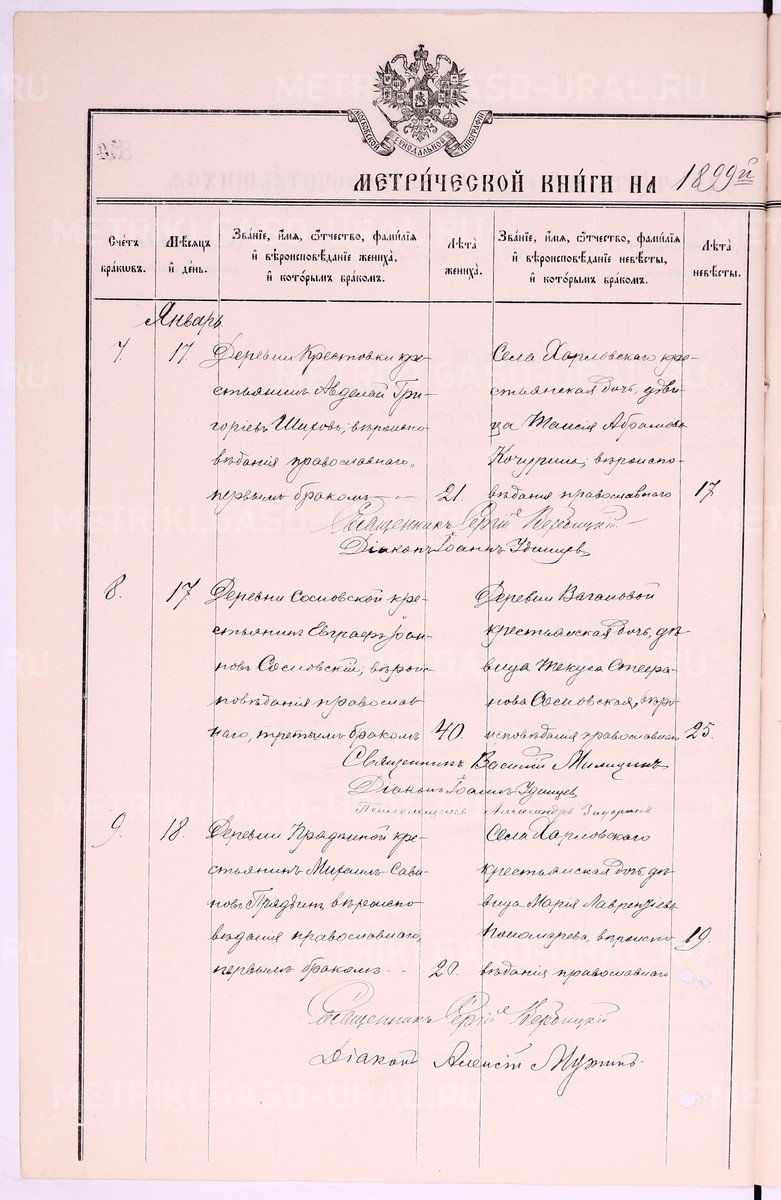 МОСКОВСКОЙ СѴНОДАЛЬНОЙ ТИПОГРАФІИ
МЕТРИ́ЧЕСКОЙ КНИ́ГИ НА 1899й
Сче́тъ бра́ковъ.
Мѣ́сяцъ и҆ де́нь.
Зва́нїе, и҆́мя, ѻ҆́тчество, фами́лїя и҆ вѣроисповѣ́данїе жениха̀, и҆ кото́рымъ бра́комъ.
Лѣ́та жениха̀.
Зва́нїе, и҆́мя, ѻ҆́тчество, фами́лїя и҆ вѣроисповѣ́данїе невѣ́сты, и҆ кото́рымъ бра́комъ.
Лѣ́та невѣ́сты.
Январь
7. 17. Деревни Крестовки кре-
стьянинъ Авделай Гри-
горіевъ Шиховъ, вѣроиспо-
вѣданія православнаго,
первымъ бракомъ 21.
Села Харловскаго кре-
стьянская дочь, дѣви-
ца Таисія Абрамова
Кочурина, вѣроиспо-
вѣданія православнаго 17
Священникъ Сергій Вербицкій
Діаконъ Іоаннъ Удинцевъ
8. 17 Деревни Сосновской кре-
стьянинъ Евграфъ Іоан-
новъ Сосновскій, вѣроис-
повѣданія православ-
наго, третьимъ бракомъ 40.
Деревни Вагановой
крестьянская дочь, дѣ-
вица Текуса Стефа-
нова Сосновская, вѣро-
исповѣданія православнаго 25.
Священникъ Василій
Діаконъ Іоаннъ Удинцев
Псаломщикъ Александръ
9. 18. Деревни Прядеиной кре-
стьянинъ Михаилъ Сави-
новъ Прядеинъ, вѣроиспо-
вѣданія православнаго,
первымъ бракомъ 20.
Села Харловскаго
крестьянская дочь, дѣ-
вица Марія Лаврентіева
Пономарева, вѣроиспо- 19.
вѣданія православнаго
Священникъ Сергій Вербицкій
Діаконъ Алексій
METRIKI.GASO-URAL.RU